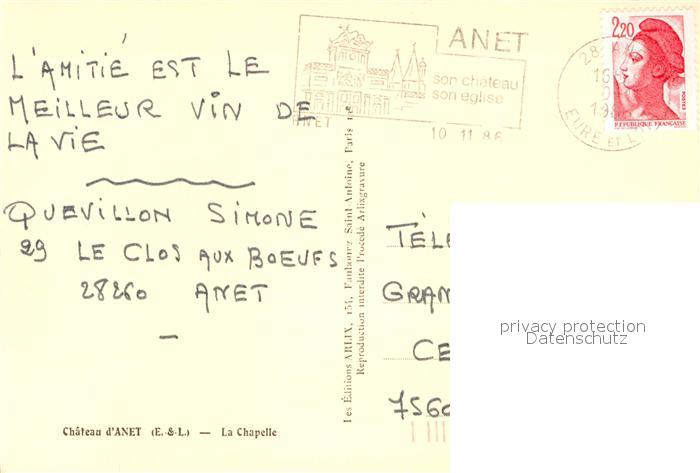 L'AMITIÉ EST LE
MEILLEUR VIN DE
LA VIE
QUEVILLON SIMONE
29 LE CLOS AUX BOEUFS
28260 ANET
Château d'ANET (E.-&-L.) — La Chapelle
Les Éditions ARLIX, 154, Faubourg Saint-Antoine, Paris
Reproduction interdite Procédé Arlixgravure
ANET
son château
son église
ANET
10 11 86
28
16
EURE ET
2,20
POSTES
REPUBLIQUE FRANÇAISE
TÉLÉ
GRAN
CE
7560
privacy protection
Datenschutz